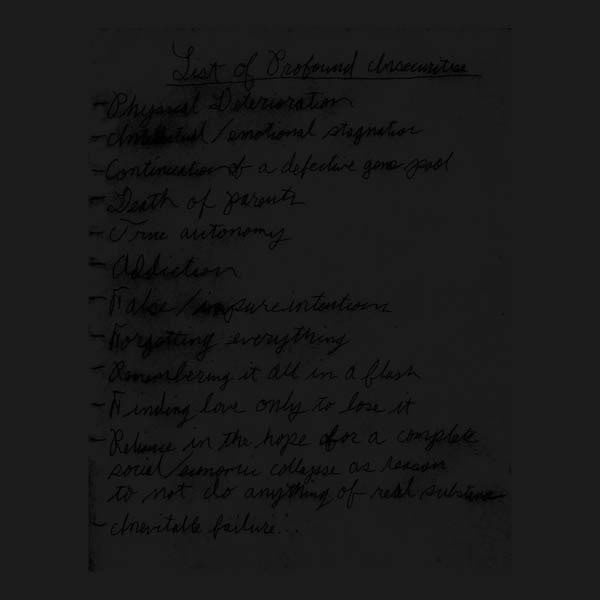 List of Profound Insecurities
- Physical Deterioration
- Intellectual / emotional stagnation
- Continuation of a defective gene pool
- Death of parents
- True autonomy
- Addiction
- False / impure intentions
- Forgetting everything
- Remembering it all in a flash
- Finding love only to lose it
- Reliance in the hope for a complete
social / economic collapse as reason
to not do anything of real substance
- Inevitable failure...